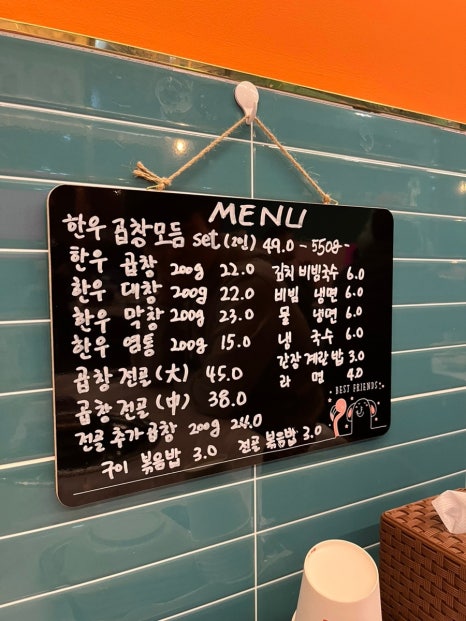 MENU
한우 곱창모듬 set (2인) 49.0 - 550g-
한우 곱창 200g 22.0
한우 대창 200g 22.0
한우 막창 200g 23.0
한우 염통 200g 15.0
곱창전골 (大) 45.0
곱창전골 (中) 38.0
전골 추가곱창 200g 24.0
구이 볶음밥 3.0 전골 볶음밥 3.0
김치 비빔국수 6.0
비빔 냉면 6.0
물 냉면 6.0
냉 국수 6.0
간장계란밥 3.0
라 면 4.0
BEST FRIENDS